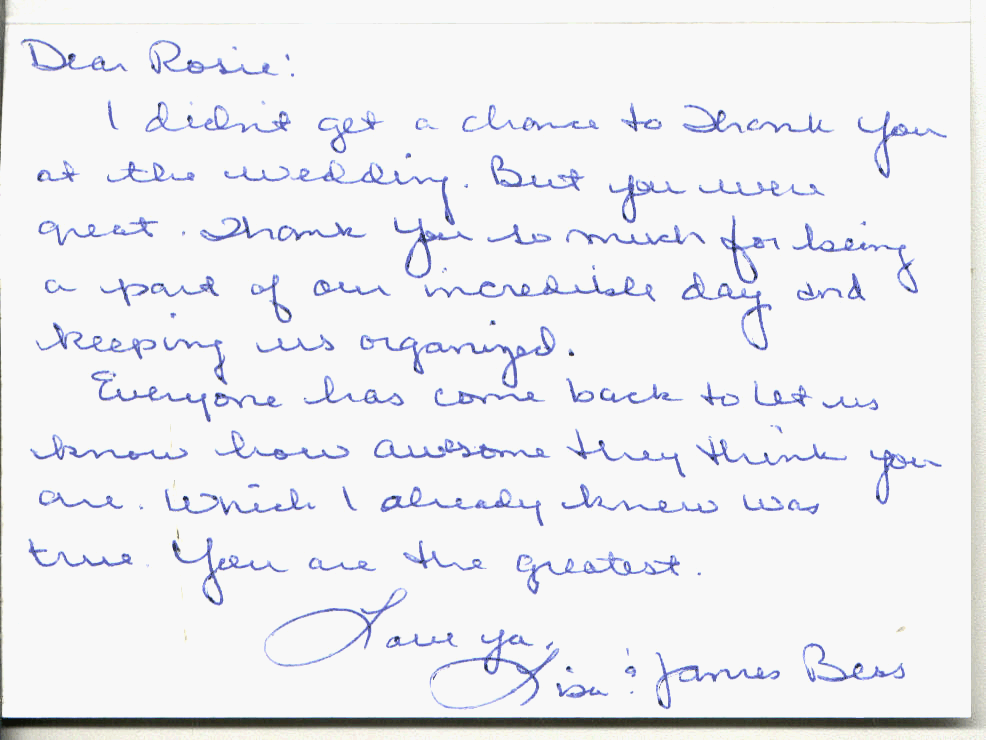 Dear Rosie:
I didn't get a chance to Thank you
at the wedding. But you were
great. Thank you so much for being
a part of our incredible day and
keeping us organized.
Everyone has come back to let us
know how awesome they think you
are. Which I already knew was
true. You are the greatest.
Love ya,
Lisa & James Bess